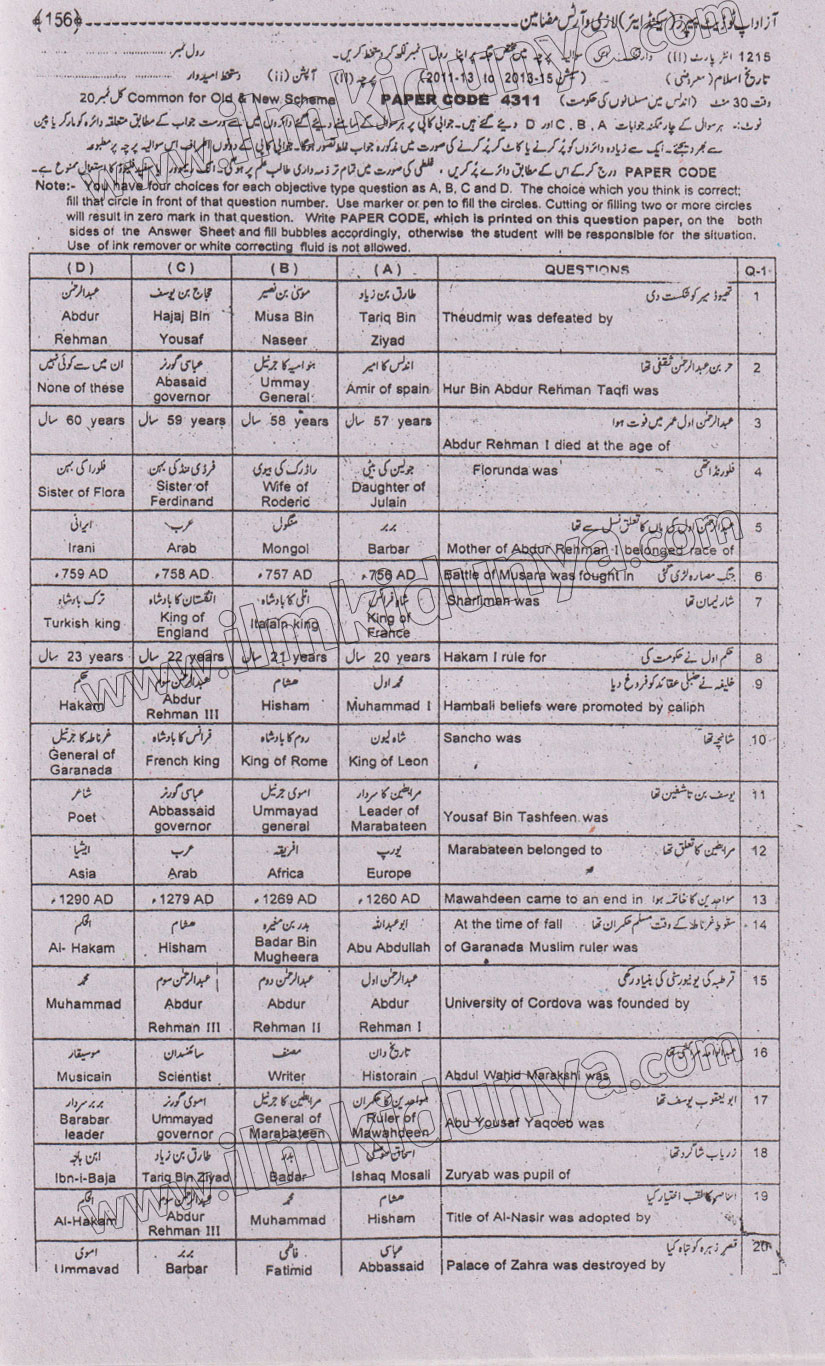 ﴾156﴿ آزاد اپ ٹو ڈیٹ پیپرز (سیکنڈ ایئر) لازمی و آرٹس مضامین
1215 انٹر پارٹ (II) وارننگ:۔ سوالیہ پرچہ میں مختص جگہ پر اپنا رول نمبر لکھ کر دستخط کریں۔ رول نمبر
تاریخ اسلام (معروضی) (سیشن 15-2013 to 13-2011) پرچہ (II) آپشن (ii) دستخط امیدوار
وقت 30 منٹ (اندلس میں مسلمانوں کی حکومت) PAPER CODE 4311 Common for Old & New Schema کل نمبر 20
نوٹ:۔ ہر سوال کے چار ممکنہ جوابات A ،B ،C اور D دیئے گئے ہیں۔ جوابی کاپی پر ہر سوال کے سامنے دیئے گئے دائروں میں سے درست جواب کے مطابق متعلقہ دائرہ کو مارکر یا پین
سے بھر دیجئے۔ ایک سے زیادہ دائروں کو پُر کرنے یا کاٹ کر پُر کرنے کی صورت میں مذکورہ جواب غلط تصور ہوگا۔ جوابی کاپی کے دونوں اطراف اس سوالیہ پرچہ پر مطبوعہ
PAPER CODE درج کر کے اس کے مطابق دائرے پُر کریں، غلطی کی صورت میں تمام تر ذمہ داری طالب علم پر ہوگی۔ انک ریموور یا سفید فلیوڈ کا استعمال ممنوع ہے۔
Note:- You have four choices for each objective type question as A, B, C and D. The choice which you think is correct;
fill that circle in front of that question number. Use marker or pen to fill the circles. Cutting or filling two or more circles
will result in zero mark in that question. Write PAPER CODE, which is printed on this question paper, on the both
sides of the Answer Sheet and fill bubbles accordingly, otherwise the student will be responsible for the situation.
Use of ink remover or white correcting fluid is not allowed.
(D) (C) (B) (A) QUESTIONS Q-1
عبدالرحمٰن حجاج بن یوسف موسیٰ بن نصیر طارق بن زیاد تھیوڈ میر کو شکست دی 1
Abdur Hajaj Bin Musa Bin Tariq Bin Theudmir was defeated by
Rehman Yousaf Naseer Ziyad
ان میں سے کوئی نہیں عباسی گورنر بنو امیہ کا جرنیل اندلس کا امیر حر بن عبدالرحمٰن ثقفی تھا 2
None of these Abasaid Ummay Amir of spain Hur Bin Abdur Rehman Taqfi was
governor General
60 years سال 59 years سال 58 years سال 57 years سال عبدالرحمٰن اول عمر میں فوت ہوا 3
Abdur Rehman I died at the age of
فلورا کی بہن فرڈی ننڈ کی بہن راڈرک کی بیوی جولین کی بیٹی Florunda was فلورنڈا تھی 4
Sister of Flora Sister of Wife of Daughter of
Ferdinand Roderic Julain
ایرانی عرب منگول بربر عبدالرحمٰن اول کی ماں کا تعلق نسل سے تھا 5
Irani Arab Mongol Barbar Mother of Abdur Rehman I belonged race of
759 AD، 758 AD، 757 AD، 756 AD، Battle of Musara was fought in جنگ مصارہ لڑی گئی 6
ترک بادشاہ انگلستان کا بادشاہ اٹلی کا بادشاہ شاہ فرانس Sharliman was شارلیمان تھا 7
Turkish king King of Italain king King of
England France
23 years سال 22 years سال 21 years سال 20 years سال Hakam I rule for حکم اول نے حکومت کی 8
حکم عبدالرحمٰن سوم ھشام محمد اول خلیفہ نے حنبلی عقائد کو فروغ دیا 9
Hakam Abdur Hisham Muhammad I Hambali beliefs were promoted by caliph
Rehman III
غرناطہ کا جرنیل فرانس کا بادشاہ روم کا بادشاہ شاہ لیون Sancho was شانچہ تھا 10
General of French king King of Rome King of Leon
Garanada
شاعر عباسی گورنر اموی جرنیل مرابطین کا سردار یوسف بن تاشفین تھا 11
Poet Abbassaid Ummayad Leader of Yousaf Bin Tashfeen was
governor general Marabateen
ایشیا عرب افریقہ یورپ Marabateen belonged to مرابطین کا تعلق تھا 12
Asia Arab Africa Europe
1290 AD، 1279 AD، 1269 AD، 1260 AD، Mawahdeen came to an end in مواحدین کا خاتمہ ہوا 13
الحکم ھشام بدر بن مغیرہ ابو عبداللہ At the time of fall سقوط غرناطہ کے وقت مسلم حکمران تھا 14
Al- Hakam Hisham Badar Bin Abu Abdullah of Garanada Muslim ruler was
Mugheera
محمد عبدالرحمٰن سوم عبدالرحمٰن دوم عبدالرحمٰن اول قرطبہ کی یونیورسٹی کی بنیاد رکھی 15
Muhammad Abdur Abdur Abdur University of Cordova was founded by
Rehman III Rehman II Rehman I
موسیقار سائنسدان مصنف تاریخ دان عبدالواحد مراکشی تھا 16
Musicain Scientist Writer Historain Abdul Wahid Marakshi was
بربر سردار اموی گورنر مرابطین کا جرنیل مواحدین کا حکمران ابو یعقوب یوسف تھا 17
Barabar Ummayad General of Ruler of Abu Yousaf Yaqoob was
leader governor Marabateen Mawahdeen
ابن باجہ طارق بن زیاد بدر اسحاق موصلی زریاب شاگرد تھا 18
Ibn-i-Baja Tariq Bin Ziyad Badar Ishaq Mosali Zuryab was pupil of
الحکم عبدالرحمٰن سوم محمد ھشام الناصر کا لقب اختیار کیا 19
Al-Hakam Abdur Muhammad Hisham Title of Al-Nasir was adopted by
Rehman III
اموی بربر فاطمی عباسی قصر زہرہ کو تباہ کیا 20
Ummayad Barbar Fatimid Abbassaid Palace of Zahra was destroyed by
www.ilmkidunya.com
www.ilmkidunya.com
www.ilmkidunya.com
www.ilmkidunya.com